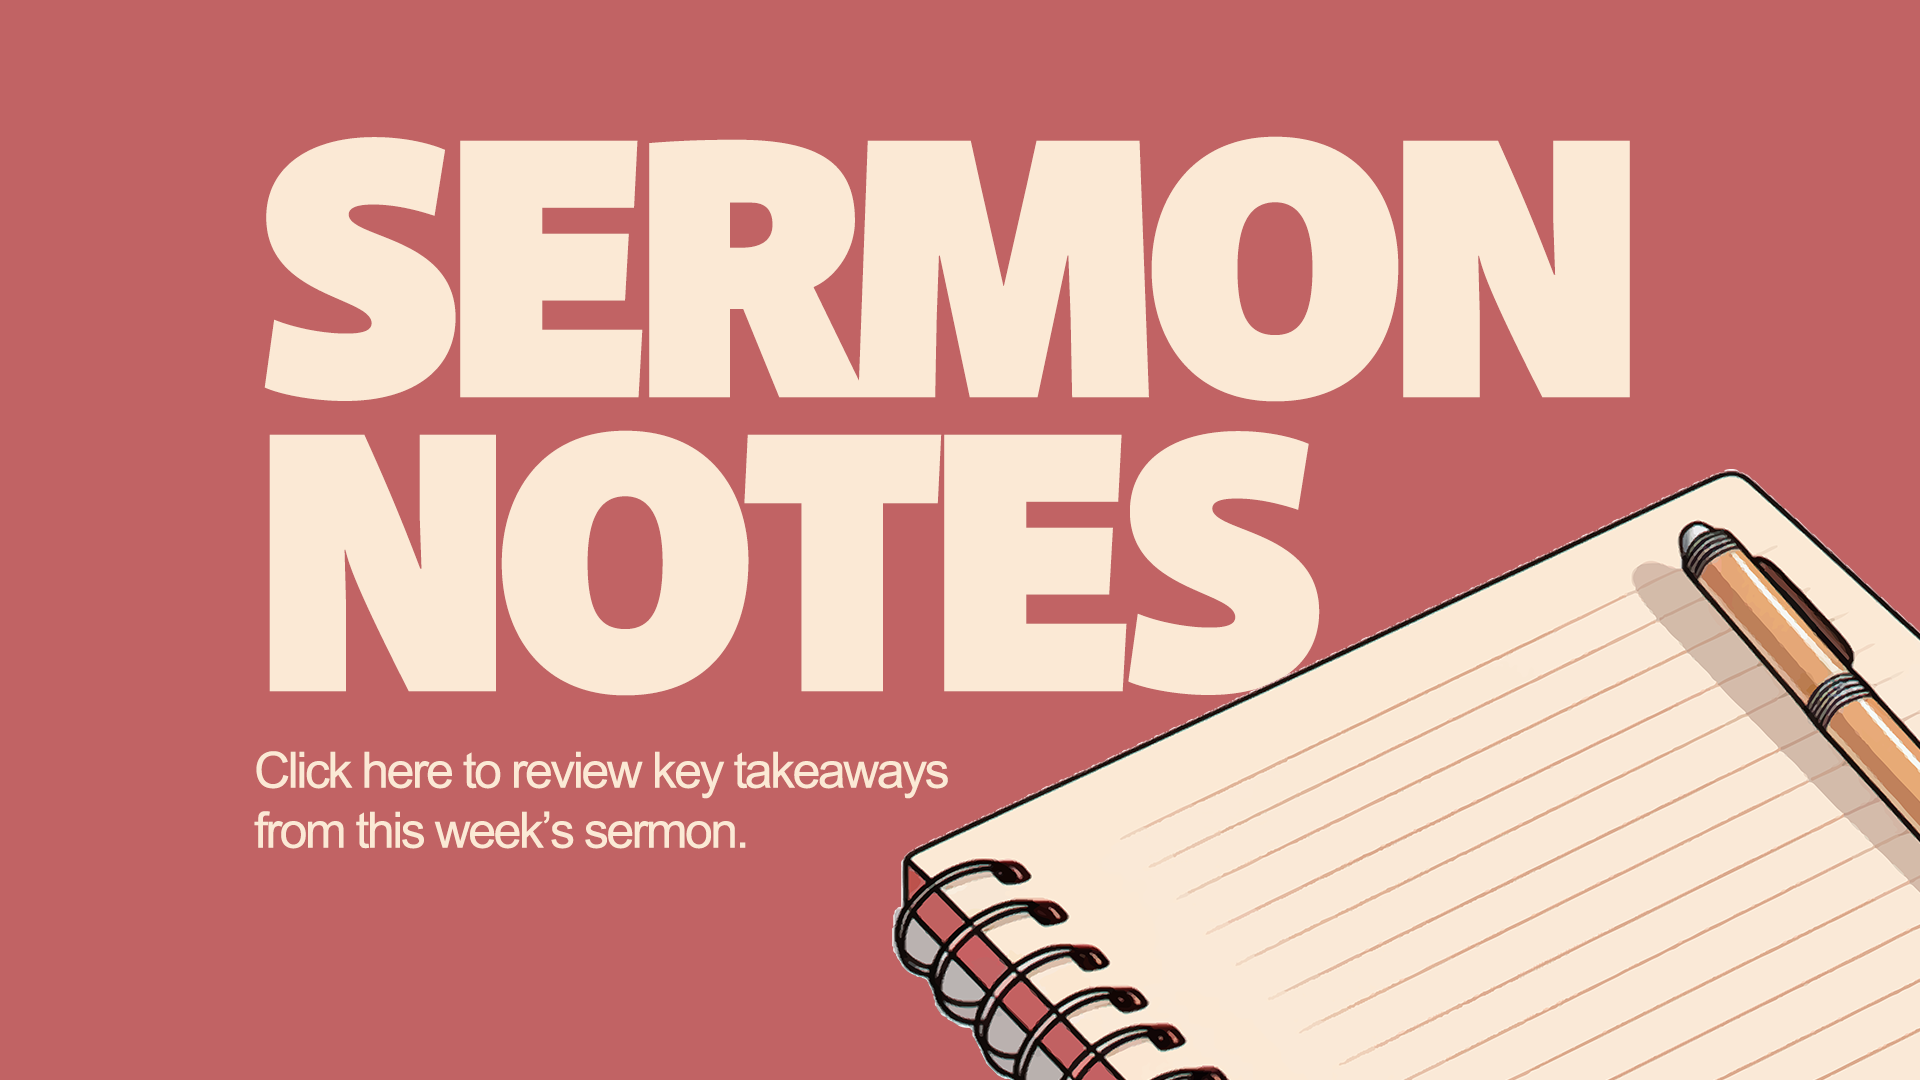 SERMON
NOTES
Click here to review key takeaways
from this week’s sermon.